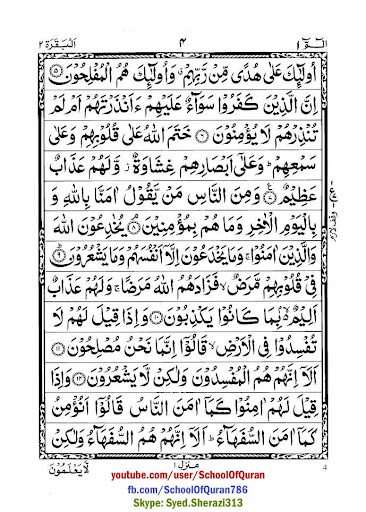 الٓمّٓ ١ ٤ اَلْبَقَرَة ٢
اُولٰٓئِكَ عَلٰى هُدًى مِّنْ رَّبِّهِمْ ۙ وَاُولٰٓئِكَ هُمُ الْمُفْلِحُوْنَ ۝٥
اِنَّ الَّذِيْنَ كَفَرُوْا سَوَآءٌ عَلَيْهِمْ ءَاَنْذَرْتَهُمْ اَمْ لَمْ
تُنْذِرْهُمْ لَا يُؤْمِنُوْنَ ۝٦ خَتَمَ اللهُ عَلٰى قُلُوْبِهِمْ وَعَلٰى
سَمْعِهِمْ ؕ وَعَلٰٓى اَبْصَارِهِمْ غِشَاوَةٌ ؗ وَّلَهُمْ عَذَابٌ
عَظِيْمٌ ۝٧ وَمِنَ النَّاسِ مَنْ يَّقُوْلُ اٰمَنَّا بِاللهِ وَ
بِالْيَوْمِ الْاٰخِرِ وَمَا هُمْ بِمُؤْمِنِيْنَ ۝٨ يُخٰدِعُوْنَ اللهَ
وَالَّذِيْنَ اٰمَنُوْا ۚ وَمَا يَخْدَعُوْنَ اِلَّاۤ اَنْفُسَهُمْ وَمَا يَشْعُرُوْنَ ۝٩
فِيْ قُلُوْبِهِمْ مَّرَضٌ ۙ فَزَادَهُمُ اللهُ مَرَضًا ۚ وَلَهُمْ عَذَابٌ
اَلِيْمٌ ۢ ۙ بِمَا كَانُوْا يَكْذِبُوْنَ ۝١٠ وَاِذَا قِيْلَ لَهُمْ لَا
تُفْسِدُوْا فِي الْاَرْضِ ۙ قَالُوْۤا اِنَّمَا نَحْنُ مُصْلِحُوْنَ ۝١١
اَلَاۤ اِنَّهُمْ هُمُ الْمُفْسِدُوْنَ وَلٰكِنْ لَّا يَشْعُرُوْنَ ۝١٢ وَاِذَا
قِيْلَ لَهُمْ اٰمِنُوْا كَمَاۤ اٰمَنَ النَّاسُ قَالُوْۤا اَنُؤْمِنُ
كَمَاۤ اٰمَنَ السُّفَهَآءُ ؕ اَلَاۤ اِنَّهُمْ هُمُ السُّفَهَآءُ وَلٰكِنْ
منزل ١
لَّا يَعْلَمُوْنَ
4
youtube.com/user/SchoolOfQuran
fb.com/SchoolOfQuran786
Skype: Syed.Sherazi313